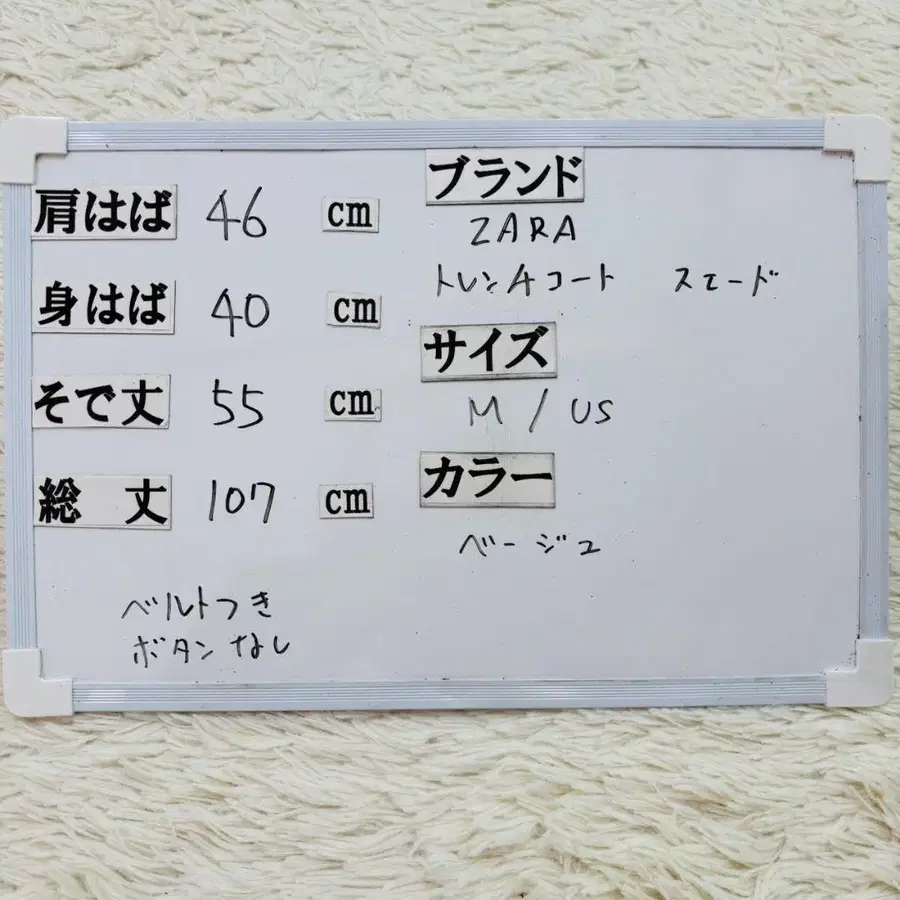 肩はば 46 cm
身はば 40 cm
そで丈 55 cm
総 丈 107 cm
ベルトつき
ボタンなし
ブランド
ZARA
トレンチコート スエード
サイズ
M / US
カラー
ベージュ